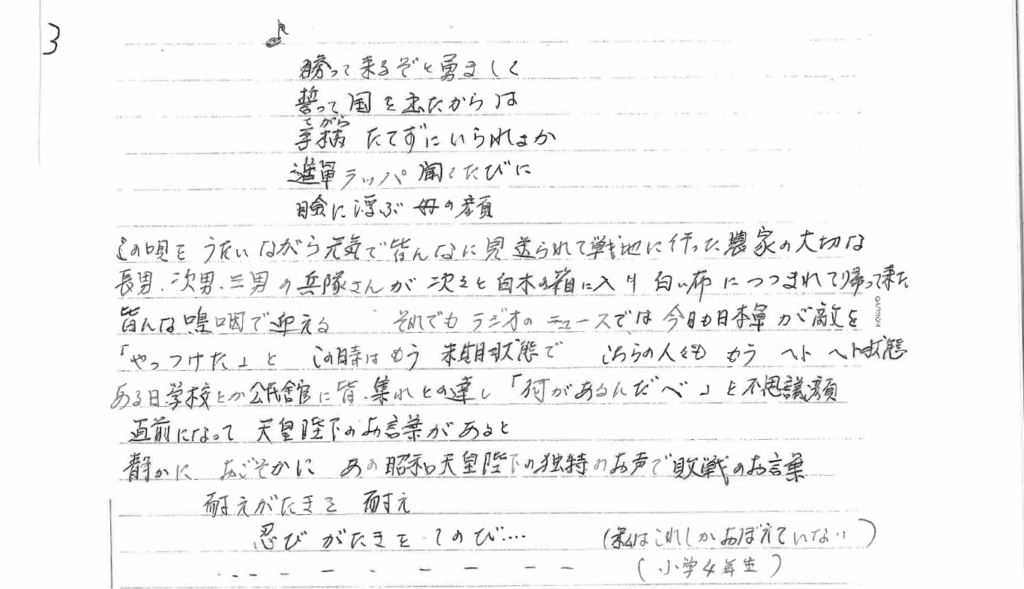 3
♪
勝って来るぞと勇ましく
誓って国を出たからは
てがら
手柄 たてずにいられよか
進軍ラッパ 聞くたびに
瞼に浮ぶ 母の顔
この唄を うたいながら元気で皆んなに見送られて戦地に行った農家の大切な
長男、次男、三男の兵隊さんが 次々と白木の箱に入り 白い布につつまれて帰って来た
皆んな嗚咽で迎える それでもラジオのニュースでは今日も日本軍が敵を
「やっつけた」と この時はもう 末期状態で こちらの人々も もう ヘトヘト状態
ある日学校とか公民館に皆、集れとの達し「何があるんだべ」と不思議顔
直前になって 天皇陛下のお言葉があると
静かに おごそかに あの昭和天皇陛下の独特のお声で敗戦のお言葉
耐えがたきを 耐え
忍びがたきを しのび....
(私はこれしかおぼえていない)
(小学4年生)